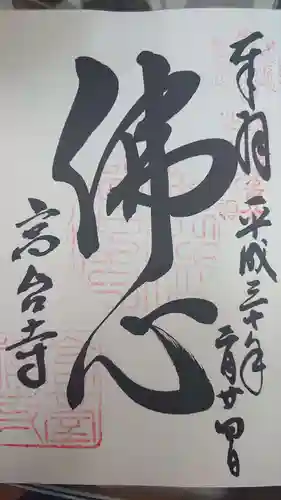 奉拝 平成三十年二月廿四日
佛心
高台寺